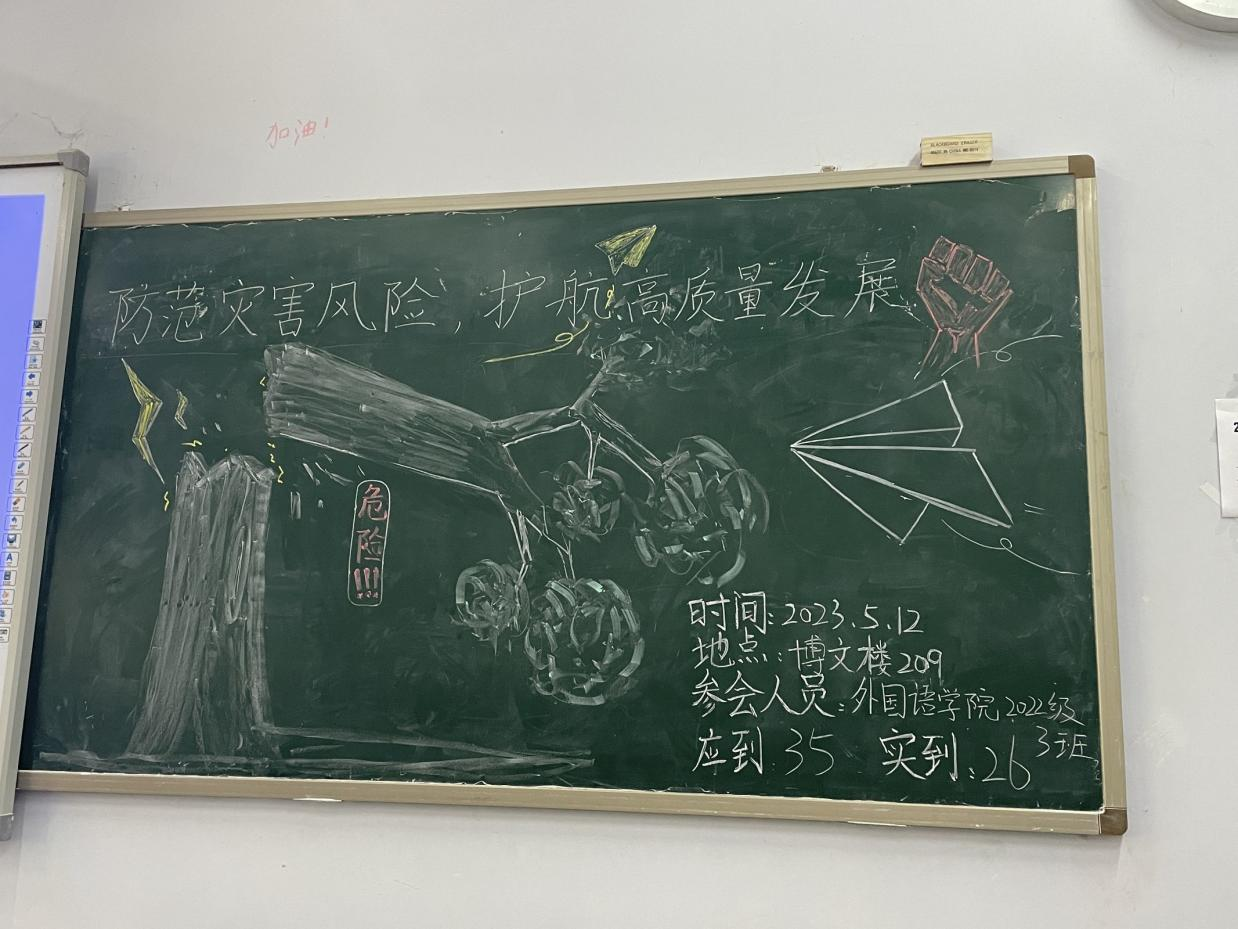 加油!
BLACKBOARD ERASER
防范灾害风险,护航高质量发展
危险!!!
时间:2023.5.12
地点:博文楼209
参会人员:外国语学院2022级
3班
应到:35 实到:26
2